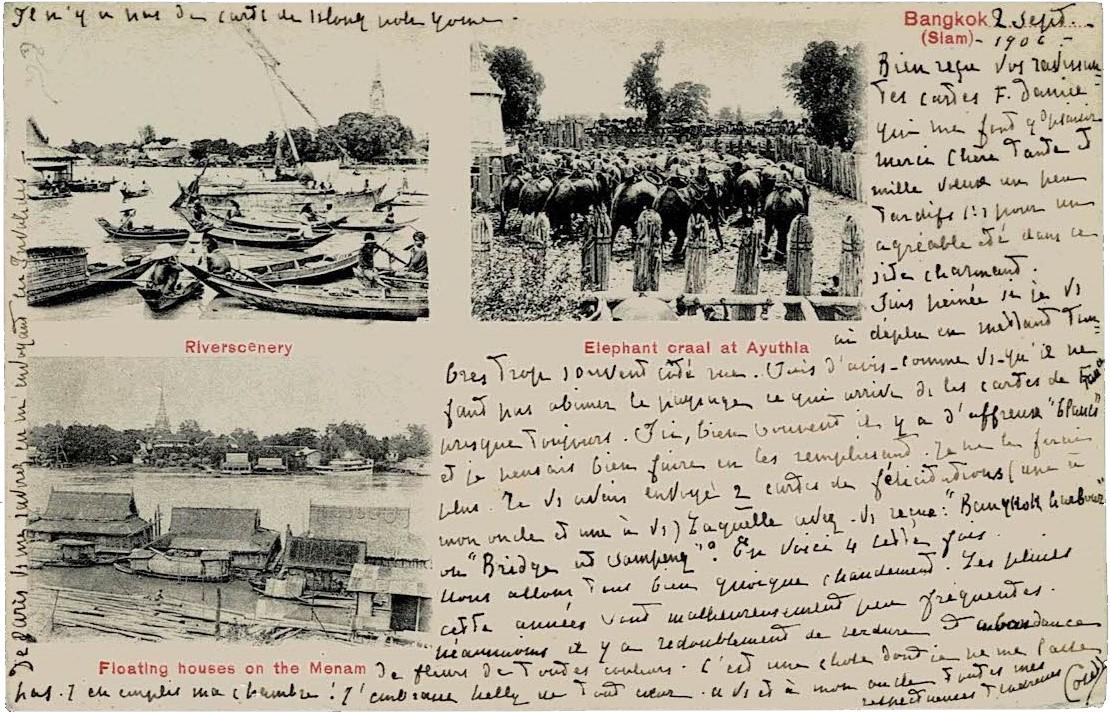 Je n'y a pas de carte de
Bangkok 2 sept.
(Siam) - 1906 -
Bien reçu vos ravissan-
tes cartes F. Damié
qui me font gd plaisir
merci chère tante et
mille vœux un peu
tardifs pour un
agréable été dans ce
site charmant.
Suis peinée si je vs
ai déplu en mettant tim-
Riverscenery
Elephant craal at Ayuthia
bres trop souvent côté vue. Suis d'avis - comme vs - qu'il ne
faut pas abimer le paysage ce qui arrive ds les cartes de
presque toujours. Ici, bien souvent il y a d'affreux "blancs"
et je pensais bien faire en les remplissant. Je ne le ferai
plus. Je vs avais envoyé 2 cartes de félicitations (une à
mon oncle et une à vs) Laquelle avez-vs reçue: "Bangkok harbour"
ou "Bridge at Sampeng"? En voici 4 cette fois.
Nous allons tous bien quoique chaudement. Les pluies
cette année sont malheureusement peu fréquentes.
Néanmoins il y a redoublement de verdure et abondance
Floating houses on the Menam
de fleurs de toutes couleurs. C'est une chose dont je ne me passe
pas. J'en emplis ma chambre! J'embrasse Nelly de tout cœur. A vs et à mon oncle toutes mes
respectueuses tendresses
De Paris vs me ravirez en m'envoyant les Invalides